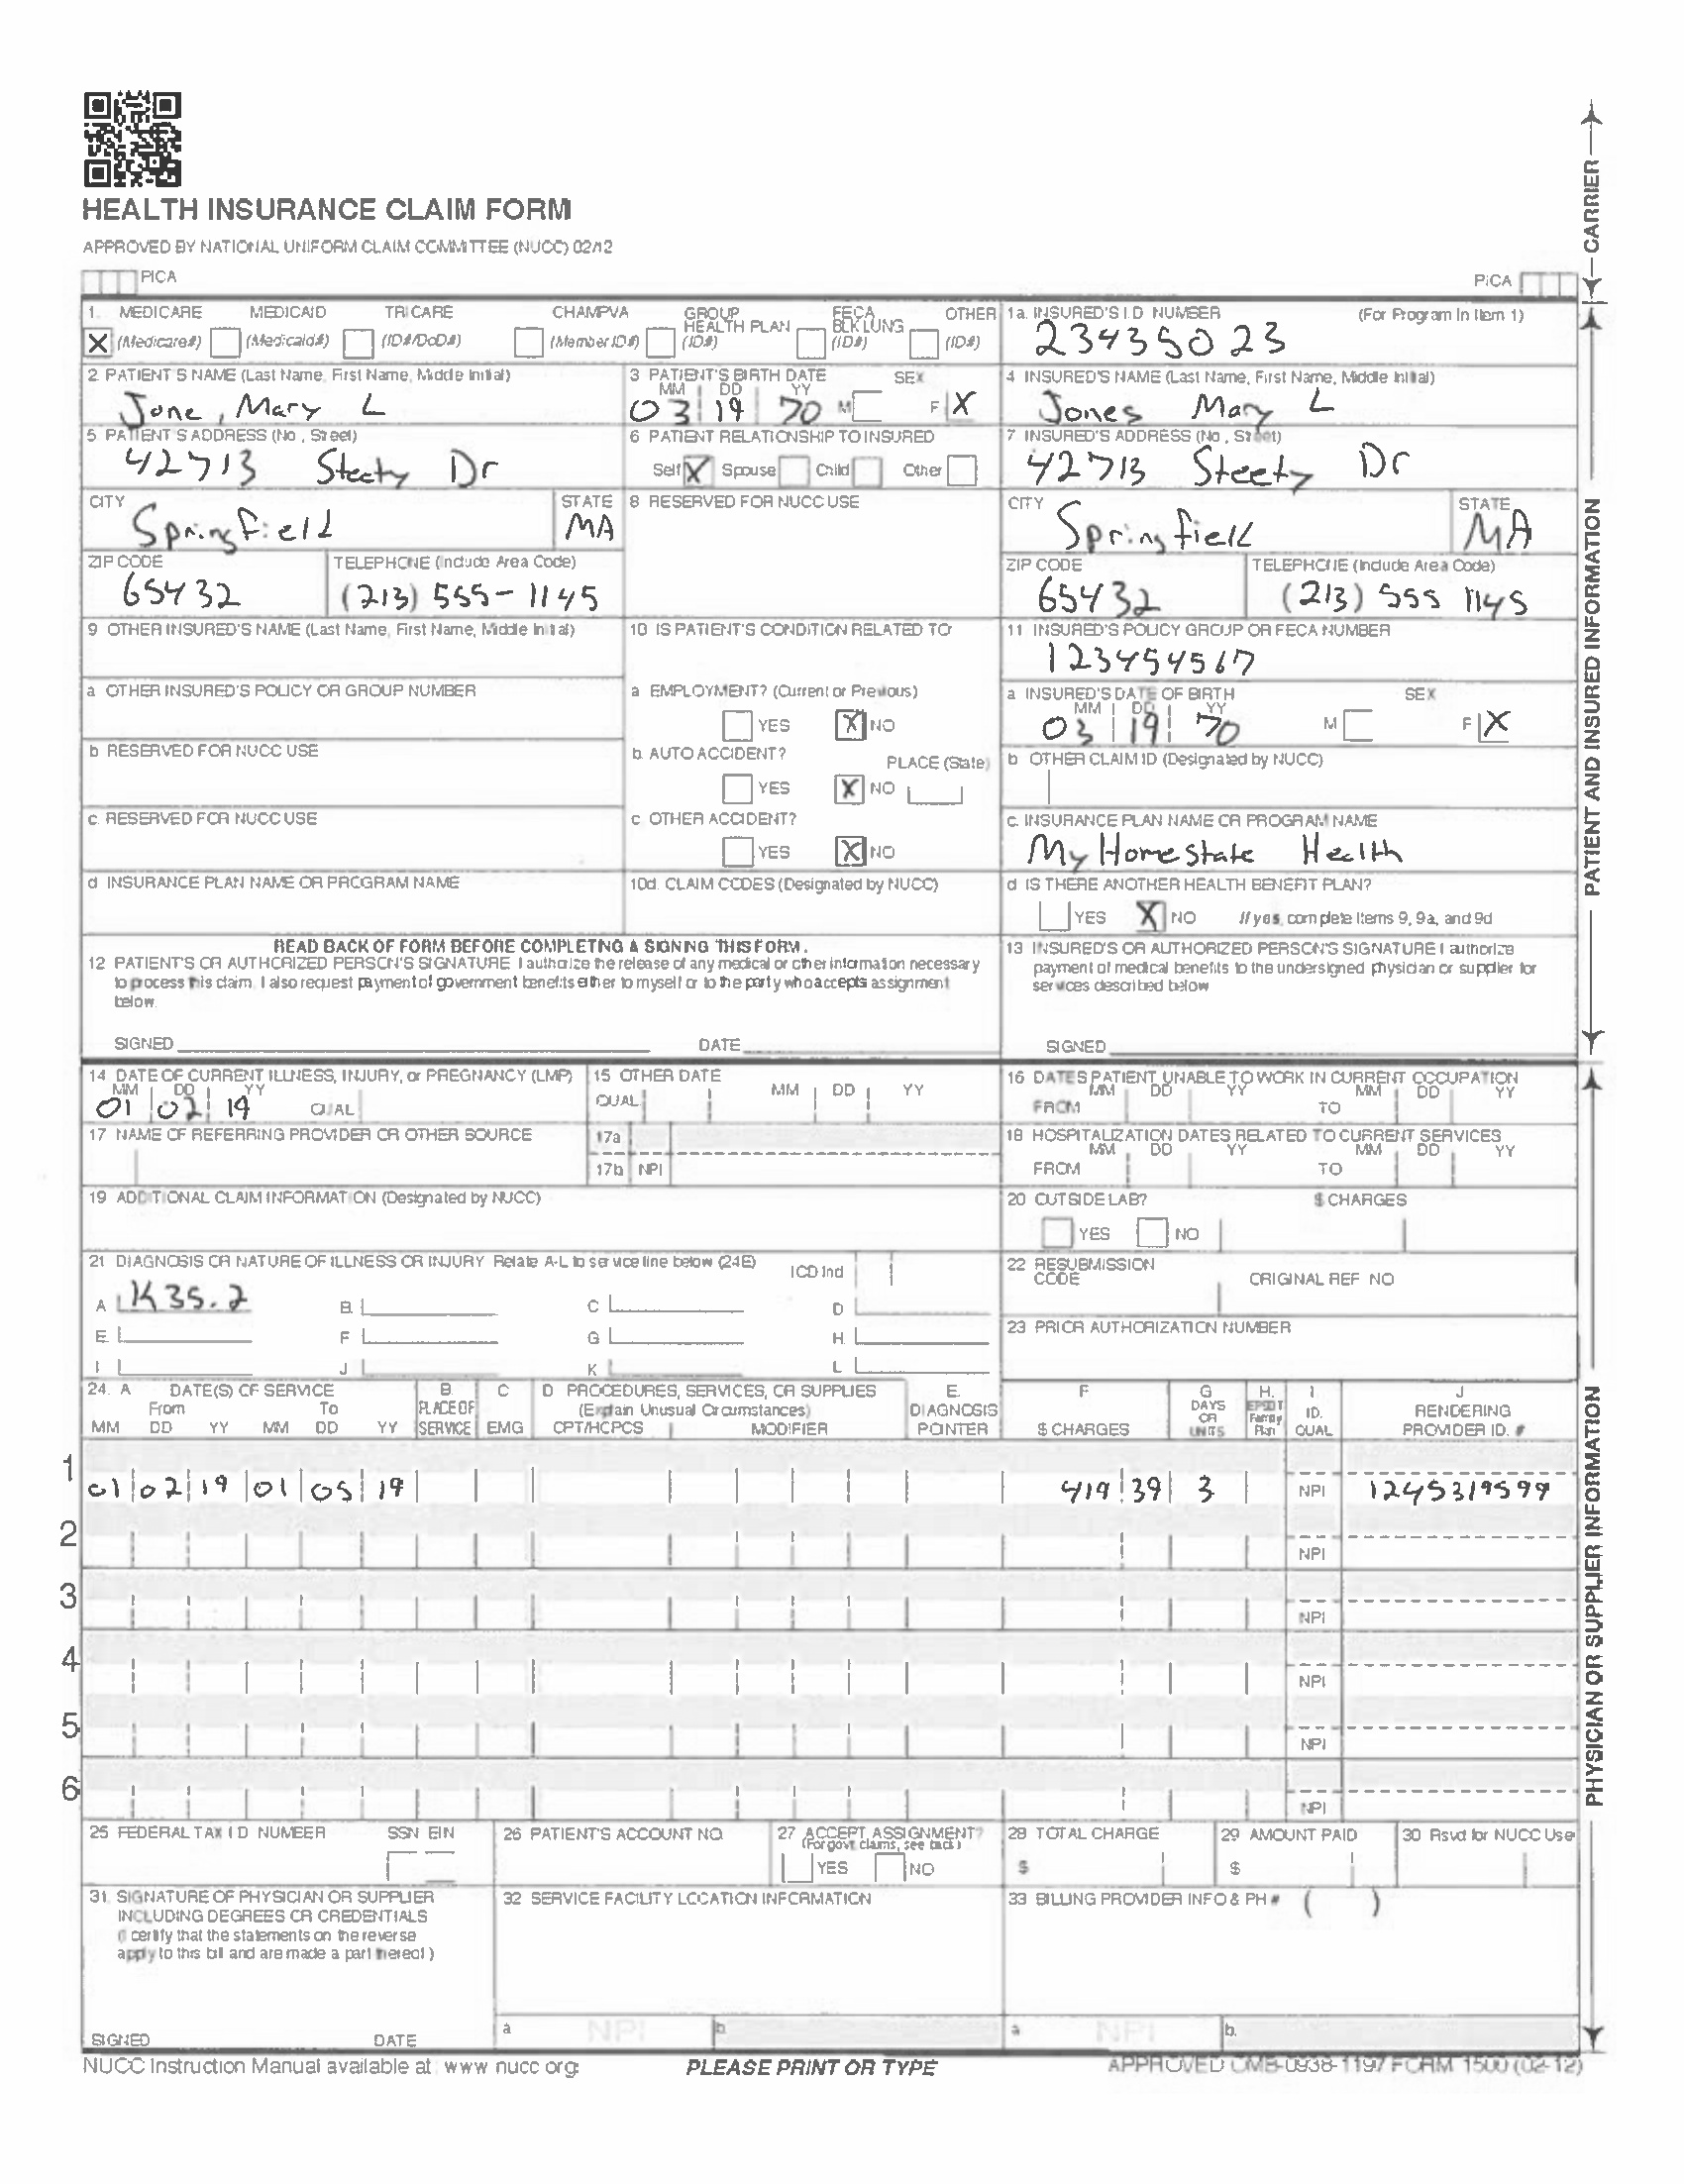 HEALTH INSURANCE CLAIM FORM
APPROVED BY NATIONAL UNIFORM CLAIM COMMITTEE (NUCC) 02/12
PICA
PICA
CARRIER
1. MEDICARE MEDICAID TRICARE CHAMPVA GROUP HEALTH PLAN FECA BLK LUNG OTHER
X (Medicare#) (Medicaid#) (ID#/DoD#) (Member ID#) (ID#) (ID#) (ID#)
1a. INSURED'S I.D. NUMBER (For Program in Item 1)
234350 23
2. PATIENT'S NAME (Last Name, First Name, Middle Initial)
Jone, Mary L
3. PATIENT'S BIRTH DATE SEX
MM DD YY
03 19 70 M F X
4. INSURED'S NAME (Last Name, First Name, Middle Initial)
Jones Mary L
5. PATIENT'S ADDRESS (No., Street)
42713 Steety Dr
6. PATIENT RELATIONSHIP TO INSURED
Self X Spouse Child Other
7. INSURED'S ADDRESS (No., Street)
42713 Steety Dr
CITY STATE
Springfield MA
8. RESERVED FOR NUCC USE
CITY STATE
Springfield MA
ZIP CODE TELEPHONE (Include Area Code)
65432 (213) 555-1145
ZIP CODE TELEPHONE (Include Area Code)
65432 (213) 555 1145
9. OTHER INSURED'S NAME (Last Name, First Name, Middle Initial)
10. IS PATIENT'S CONDITION RELATED TO:
11. INSURED'S POLICY GROUP OR FECA NUMBER
123454567
a. OTHER INSURED'S POLICY OR GROUP NUMBER
a. EMPLOYMENT? (Current or Previous)
YES X NO
a. INSURED'S DATE OF BIRTH SEX
MM DD YY
03 19 70 M F X
b. RESERVED FOR NUCC USE
b. AUTO ACCIDENT? PLACE (State)
YES X NO
b. OTHER CLAIM ID (Designated by NUCC)
c. RESERVED FOR NUCC USE
c. OTHER ACCIDENT?
YES X NO
c. INSURANCE PLAN NAME OR PROGRAM NAME
My Home State Health
d. INSURANCE PLAN NAME OR PROGRAM NAME
10d. CLAIM CODES (Designated by NUCC)
d. IS THERE ANOTHER HEALTH BENEFIT PLAN?
YES X NO If yes, complete items 9, 9a, and 9d.
READ BACK OF FORM BEFORE COMPLETING & SIGNING THIS FORM.
12. PATIENT'S OR AUTHORIZED PERSON'S SIGNATURE I authorize the release of any medical or other information necessary
to process this claim. I also request payment of government benefits either to myself or to the party who accepts assignment
below.
SIGNED DATE
13. INSURED'S OR AUTHORIZED PERSON'S SIGNATURE I authorize
payment of medical benefits to the undersigned physician or supplier for
services described below.
SIGNED
PATIENT AND INSURED INFORMATION
14. DATE OF CURRENT ILLNESS, INJURY, or PREGNANCY (LMP)
MM DD YY
01 02 19 QUAL.
15. OTHER DATE
QUAL. MM DD YY
16. DATES PATIENT UNABLE TO WORK IN CURRENT OCCUPATION
MM DD YY MM DD YY
FROM TO
17. NAME OF REFERRING PROVIDER OR OTHER SOURCE
17a.
17b. NPI
18. HOSPITALIZATION DATES RELATED TO CURRENT SERVICES
MM DD YY MM DD YY
FROM TO
19. ADDITIONAL CLAIM INFORMATION (Designated by NUCC)
20. OUTSIDE LAB? $ CHARGES
YES NO
21. DIAGNOSIS OR NATURE OF ILLNESS OR INJURY Relate A-L to service line below (24E) ICD Ind.
A. K35.2 B. C. D.
E. F. G. H.
I. J. K. L.
22. RESUBMISSION CODE ORIGINAL REF. NO.
23. PRIOR AUTHORIZATION NUMBER
24. A. DATE(S) OF SERVICE B. C. D. PROCEDURES, SERVICES, OR SUPPLIES E. F. G. H. I. J.
From To PLACE OF (Explain Unusual Circumstances) DIAGNOSIS DAYS OR UNITS EPSDT Family Plan ID. RENDERING
MM DD YY MM DD YY SERVICE EMG CPT/HCPCS MODIFIER POINTER $ CHARGES QUAL. PROVIDER ID. #
1 01 02 19 01 05 19 419 39 3 NPI 1245319599
2 NPI
3 NPI
4 NPI
5 NPI
6 NPI
25. FEDERAL TAX I.D. NUMBER SSN EIN
26. PATIENT'S ACCOUNT NO.
27. ACCEPT ASSIGNMENT?
(For govt. claims, see back)
YES NO
28. TOTAL CHARGE
$
29. AMOUNT PAID
$
30. Rsvd for NUCC Use
31. SIGNATURE OF PHYSICIAN OR SUPPLIER
INCLUDING DEGREES OR CREDENTIALS
(I certify that the statements on the reverse
apply to this bill and are made a part thereof.)
SIGNED DATE
32. SERVICE FACILITY LOCATION INFORMATION
a. NPI b.
33. BILLING PROVIDER INFO & PH # ( )
a. NPI b.
PHYSICIAN OR SUPPLIER INFORMATION
NUCC Instruction Manual available at: www.nucc.org
PLEASE PRINT OR TYPE
APPROVED OMB-0938-1197 FORM 1500 (02-12)